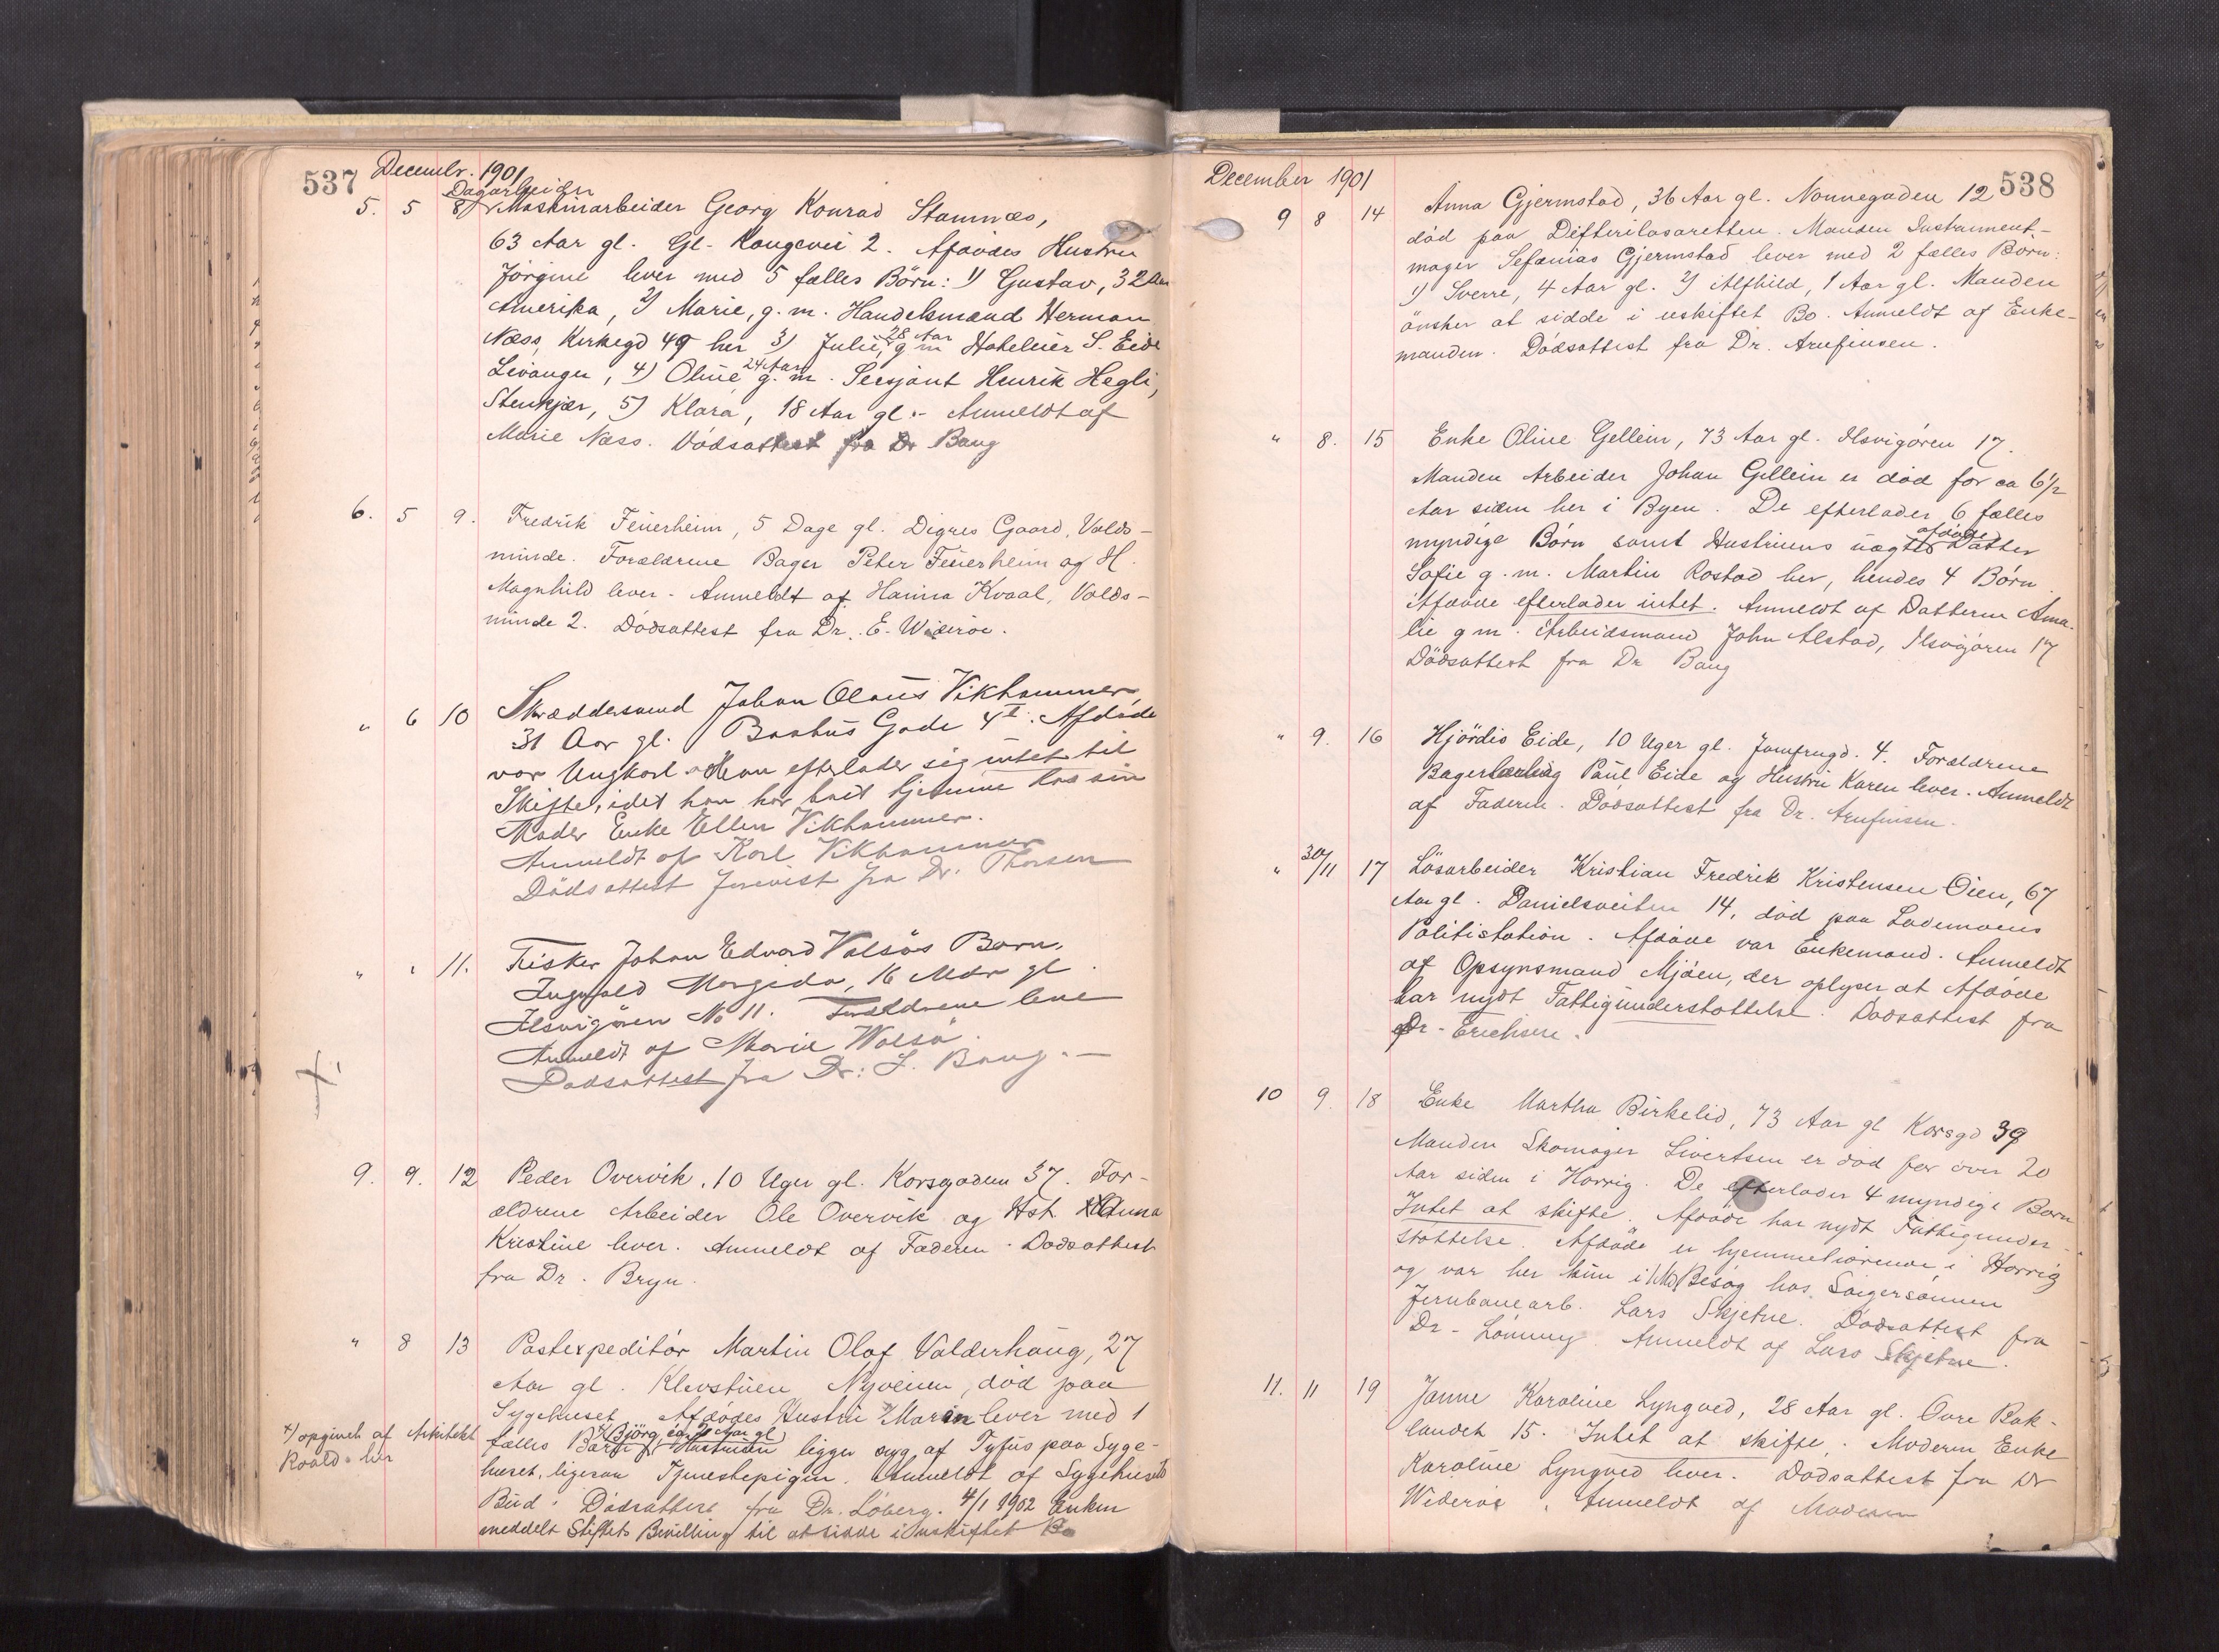 537
Decembr. 1901
Dagarbeider
5. 5 8 Maskinarbeider Georg Konrad Stamnæs,
63 Aar gl. Gl. Kongevei 2. Afdødes Hustru
Jørgine lever med 5 fælles Børn: 1) Gustav, 32 Aar
Amerika, 2) Marie, g. m. Handelsmand Herman
Næss, Kirkegd 49 her 3) Julie, 28 Aar g m Hotelier S. Eide
Levanger, 4) Oline 24 Aar g. m. Sersjant Henrik Hegli,
Stenkjær, 5) Klara, 18 Aar gl. - Anmeldt af
Marie Næss. Dødsattest fra Dr Bang
6. 5 9. Fredrik Feuerheim, 5 Dage gl. Digres Gaard, Volds-
minde. Forældrene Bager Peter Feuerheim og H.
Magnhild lever. Anmeldt af Hanna Kvaal, Volds-
minde 2. Dødsattest fra Dr. E. Widerøe.
" 6 10 Skræddersvend Johan Olaus Vikhammer,
31 Aar gl. Baahus Gade 4 II. Afdøde
var Ungkarl. Han efterlader sig intet til
Skifte, idet han har boet hjemme hos sin
Moder Enke Ellen Vikhammer.
Anmeldt af Karl Vikhammer
Dødsattest forevist fra Dr. Thorsen
" " 11. Fisker Johan Edvard Valsøs Barn,
Ingvald Margido, 16 Mdr gl.
Ilsvigøren No 11. Forældrene leve
Anmeldt af Marie Walsø.
Dødsattest fra Dr: J. Bang. —
9. 9. 12 Peder Overvik, 10 Uger gl. Korsgaden 37. For-
ældrene Arbeider Ole Overvik og Hst. Anna
Kristine lever. Anmeldt af Faderen. Dødsattest
fra Dr. Bryn.
" 8 13 Postexpeditør Martin Olaf Valderhaug, 27
Aar gl. Klevstuen Nyveien, død paa
Sygehuset. Afdødes Hustru Marie lever med 1
x) opgivet af Arkitekt
Roald - her
fælles Barn Bjørg, Aar gl Hustruen ligger syg af Tyfus paa Syge-
huset, ligesaa Tjenestepigen. Anmeldt af Sygehusets
Bud. Dødsattest fra Dr. Løberg. 4/1 1902 Enken
meddelt Stiftets Bevilling til at sidde i uskiftet Bo
538
December 1901
9 8 14 Anna Gjermstad, 36 Aar gl. Nonnegaden 12
død paa Difterilasarettet. Manden Instrument-
mager Sefanias Gjermstad lever med 2 fælles Børn:
1) Sverre, 4 Aar gl. 2) Alfhild, 1 Aar gl. Manden
ønsker at sidde i uskiftet Bo. Anmeldt af Enke-
manden. Dødsattest fra Dr. Arnfinsen.
" 8. 15 Enke Oline Gellein, 73 Aar gl. Ilsvigøren 17.
Manden Arbeider Johan Gellein er død for ca 6½
Aar siden her i Byen. De efterlader 6 fælles
myndige Børn samt Hustruens uægte afdøde Datter
Sofie g. m. Martin Rostad her, hendes 4 Børn.
Afdøde efterlader intet. Anmeldt af Datteren Ama-
lie g m. Arbeidsmand John Alstad, Ilsvigøren 17
Dødsattest fra Dr Bang
" 9. 16 Hjørdis Eide, 10 Uger gl. Jomfrugd. 4. Forældrene
Bagerlærling Paul Eide og Hustru Karen lever. Anmeldt
af Faderen. Dødsattest fra Dr. Arnfinsen.
" 30/11 17 Løsarbeider Kristian Fredrik Kristensen Øien, 67
Aar gl. Danielsveiten 14, død paa Lademoens
Politistation. Afdøde var Enkemand. Anmeldt
af Opsynsmand Mjøen, der oplyser at Afdøde
har nydt Fattigunderstøttelse. Dødsattest fra
Dr. Erichsen.
10 9. 18 Enke Martha Birkelid, 73 Aar gl Korsgd 39
Manden Skomager Sivertsen er død for over 20
Aar siden i Horrig. De efterlader 4 myndige Børn
Intet at skifte. Afdøde har nydt Fattigunder-
støttelse. Afdøde er hjemmehørende i Horrig
og var her kun i Besøg hos Svigersønnen
Jernbanearb. Lars Skjetne. Dødsattest fra
Dr. Lønning. Anmeldt af Lars Skjetne.
11. 11 19 Janne Karoline Lyngved, 28 Aar gl. Øvre Bak-
landet 15. Intet at skifte. Moderen Enke
Karoline Lyngved lever. Dødsattest fra Dr
Widerøe. Anmeldt af Moderen